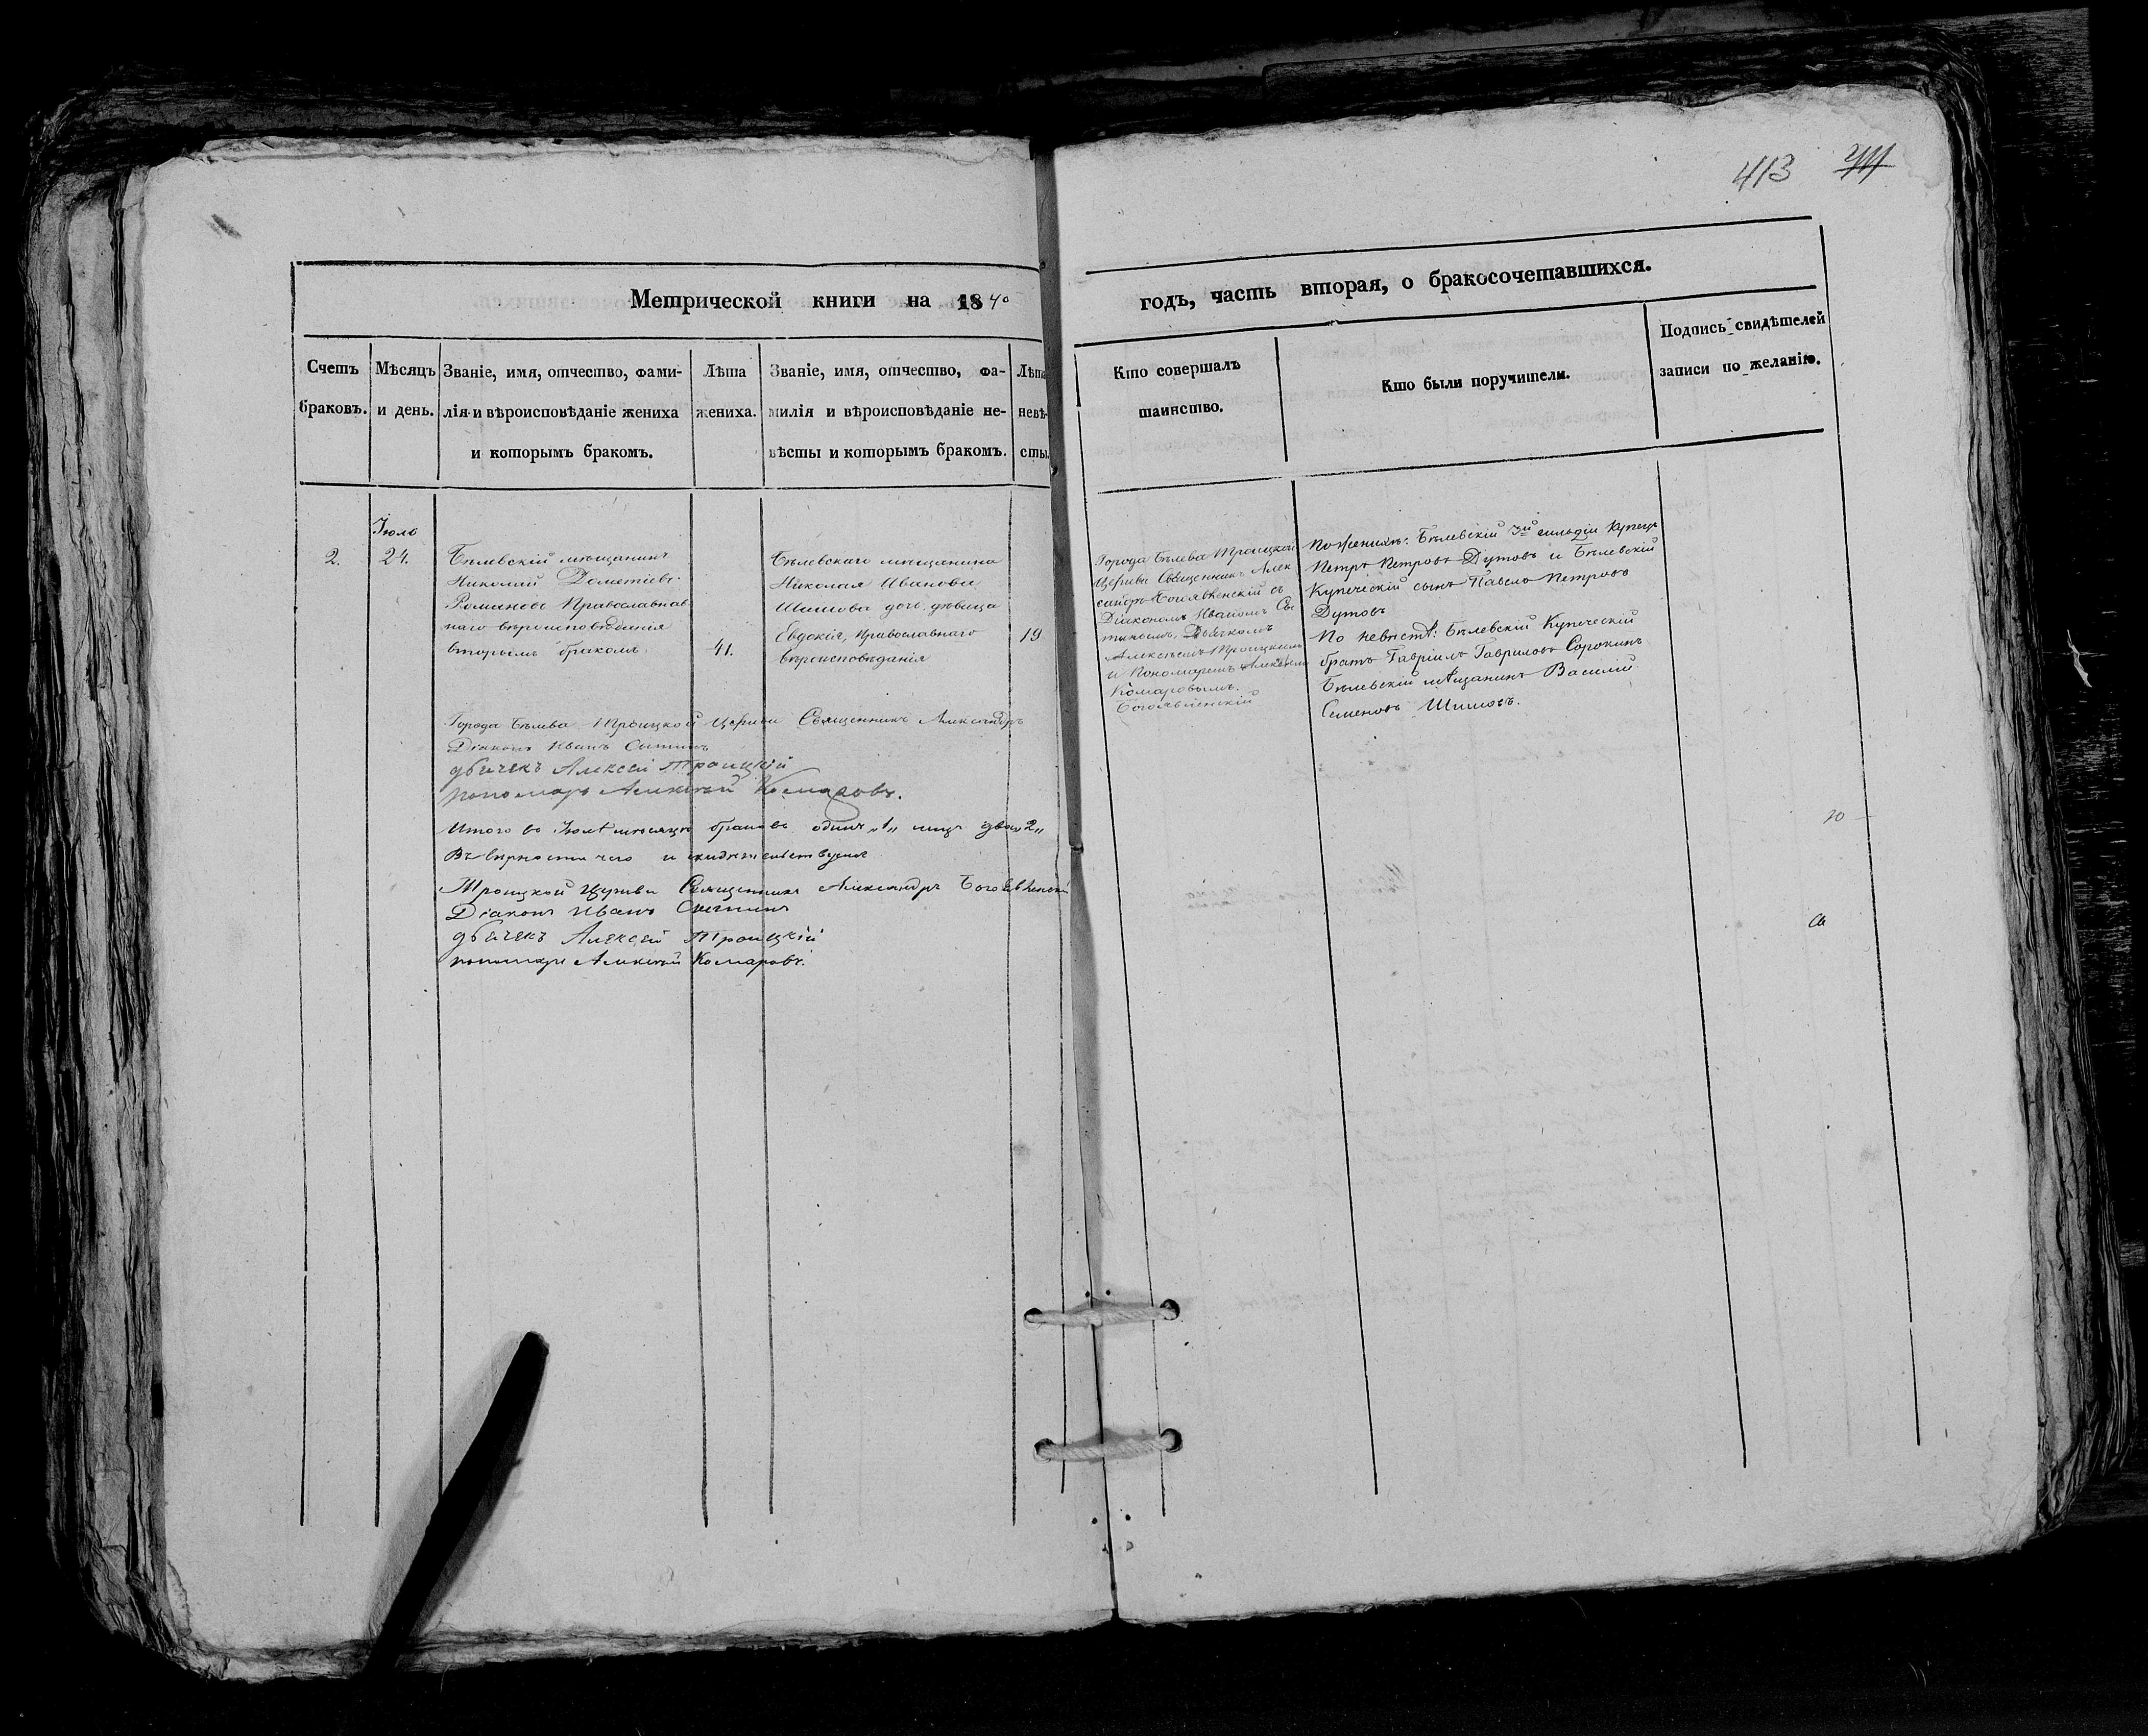 413
Метрической книги на 1840
годъ, часть вторая, о бракосочетавшихся.
Счетъ браковъ.
Мѣсяцъ и день.
Званіе, имя, отчество, фами-
лія и вѣроисповѣданіе жениха
и которымъ бракомъ.
Лѣта
жениха.
Званіе, имя, отчество, фа-
милія и вѣроисповѣданіе не-
вѣсты и которымъ бракомъ.
Лѣта
невѣ-
сты.
Кто совершалъ
таинство.
Кто были поручители.
Подпись свидѣтелей
записи по желанію.
2.
Іюль
24.
Бѣлевскій мѣщанинъ
Николай Дометіевъ
Романовъ Православнаго
вѣроисповѣданія
вторымъ бракомъ.
41.
Бѣлевскаго мѣщанина
Николая Иванова
Шишова дочь дѣвица
Евдокія, Православнаго
вѣроисповѣданія
19
Города Бѣлева Троицкой
Церкви Священникъ Алек
сандръ Богоявленскій съ
Діакономъ Иваномъ Сы
тинымъ, Дьячкомъ
Алексѣемъ Троицкимъ
и Пономаремъ Алексѣемъ
Комаровымъ.
Богоявленскій
По женихѣ: Бѣлевскій 3й гильдіи Купецъ
Петръ Петровъ Дутовъ и Бѣлевскій
Купеческій сынъ Павелъ Петровъ
Дутовъ
По невѣстѣ: Бѣлевскій Купеческій
братъ Гавріилъ Гавриловъ Сорокинъ
Бѣлевскій мѣщанинъ Василій
Семеновъ Шишовъ.
Города Бѣлева Троицкой Церкви Священникъ Александръ
Діаконъ Иванъ Сытинъ
дьячекъ Алексей Троицкій
пономарь Алексѣй Комаровъ.
Итого въ Іюлѣ мѣсяцѣ браковъ одинъ „1„ лицъ два „2„
Въ вѣрности чего и свидѣтельствуемъ
Троицкой Церкви Священникъ Александръ Богоявленскій
Діаконъ Иванъ Сытинъ
дьячекъ Алексей Троицкій
пономарь Алексѣй Комаровъ.